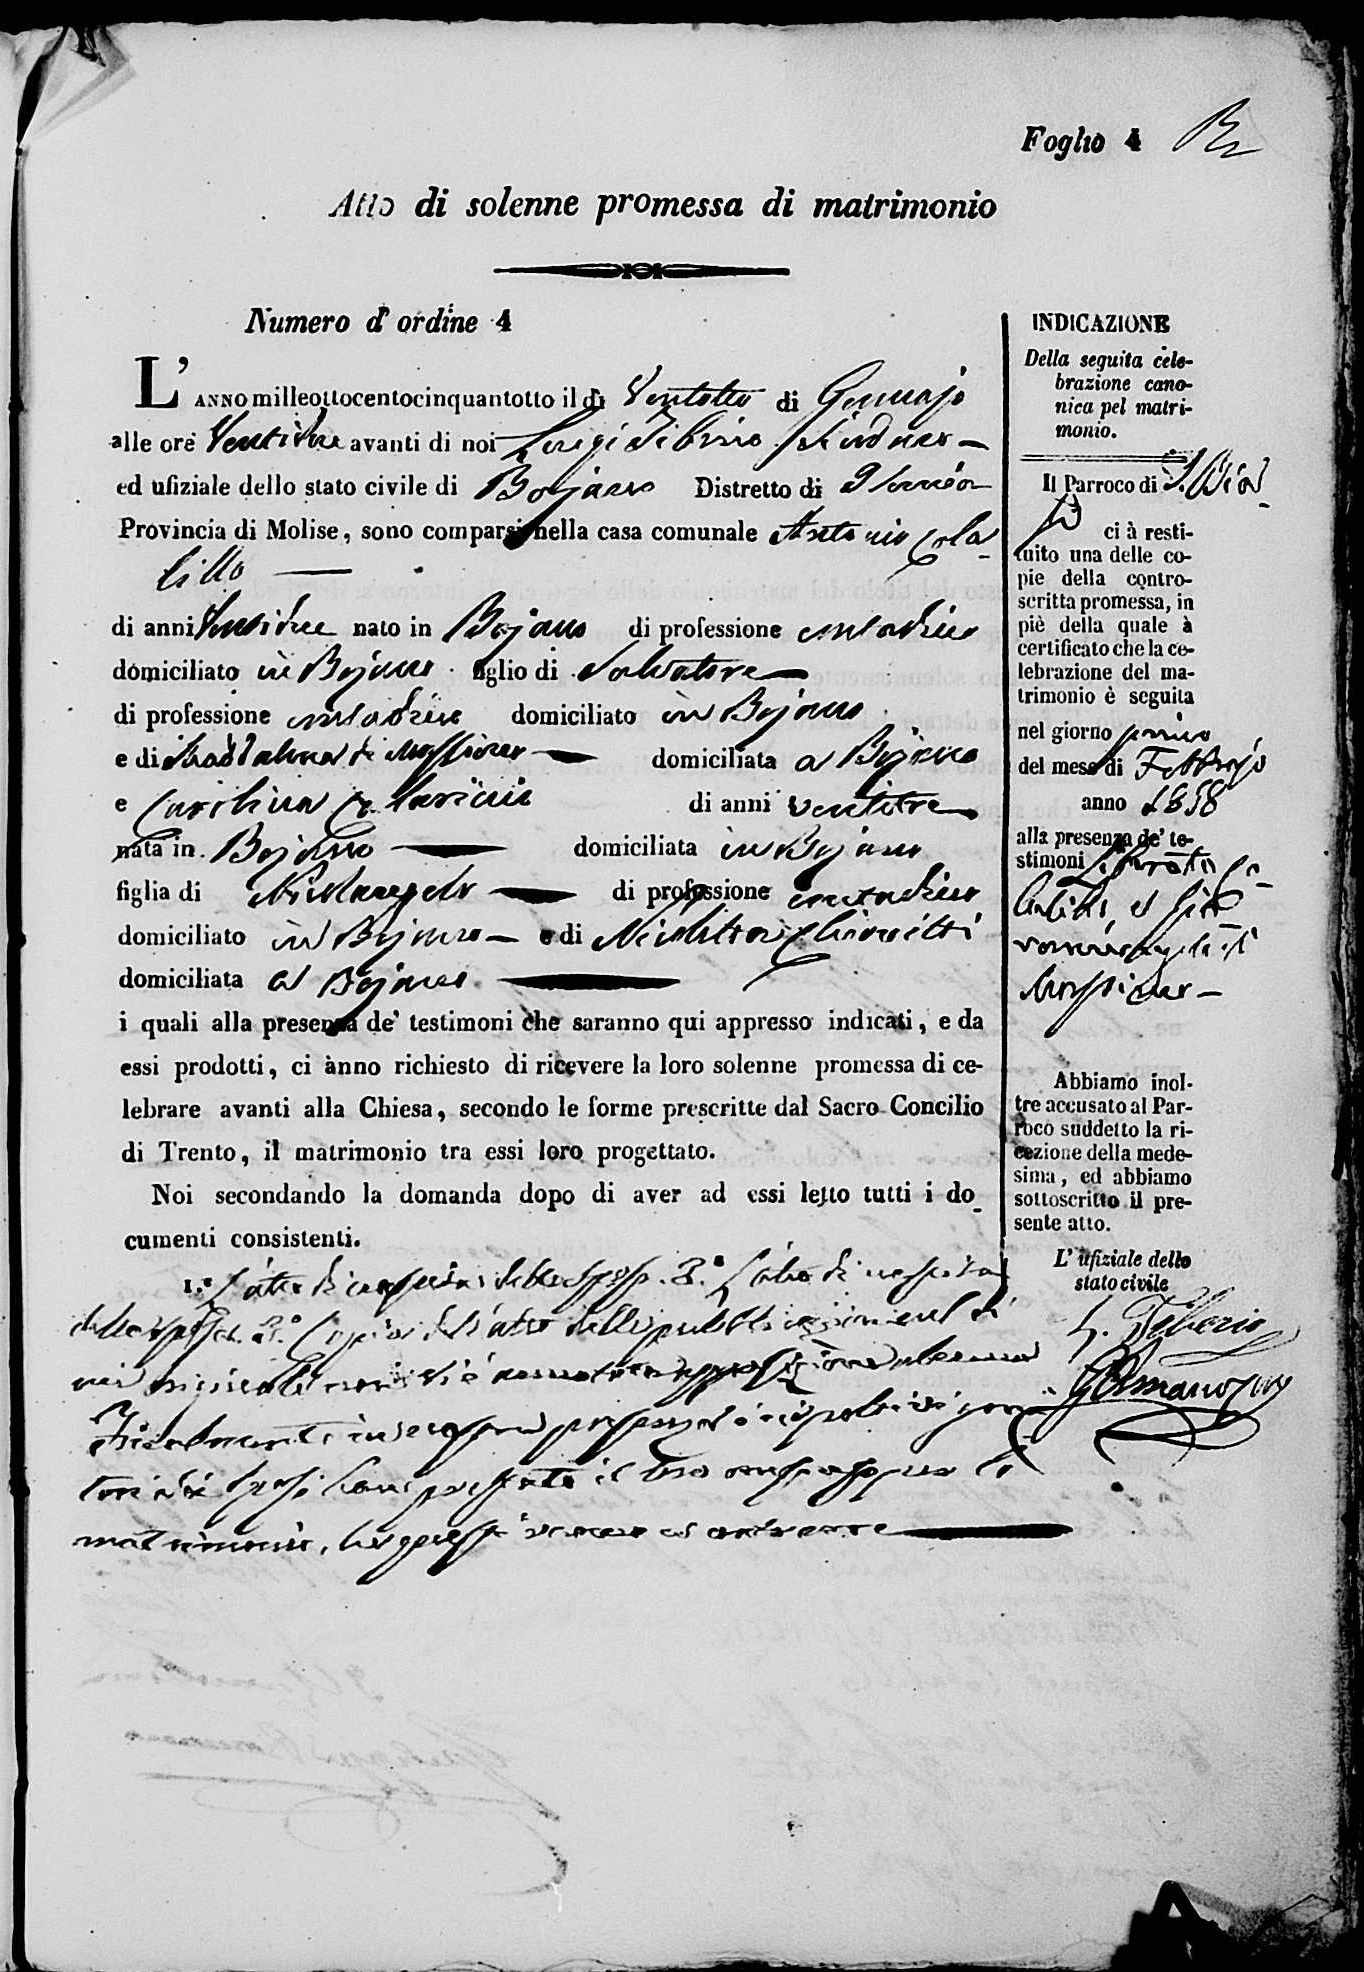 Foglio 4
Atto di solenne promessa di matrimonio
Numero d'ordine 4
L'ANNO milleottocentocinquantotto il dì Ventotto di Gennajo
alle ore Ventidue avanti di noi Luigi Tiberio Sindaco
ed ufiziale dello stato civile di Bojano Distretto di Isernia
Provincia di Molise, sono comparsi nella casa comunale Antonio Cola
lillo
di anni Ventidue nato in Bojano di professione contadino
domiciliato in Bojano figlio di Salvatore
di professione contadino domiciliato in Bojano
e di Maddalena di domiciliata a Bojano
e Carolina di anni ventitre
nata in Bojano domiciliata in Bojano
figlia di Michelangelo di professione contadino
domiciliato in Bojano e di Nicoletta
domiciliata a Bojano
i quali alla presenza de' testimoni che saranno qui appresso indicati, e da
essi prodotti, ci ànno richiesto di ricevere la loro solenne promessa di ce-
lebrare avanti alla Chiesa, secondo le forme prescritte dal Sacro Concilio
di Trento, il matrimonio tra essi loro progettato.
Noi secondando la domanda dopo di aver ad essi letto tutti i do-
cumenti consistenti.
1.° L'atto di nascita dello sposo. 2.° L'atto di nascita
della sposa. 3.° Copia dell'atto delle pubblicazioni
opposizione alcuna
Finalmente in nostra presenza i rispettivi geni
tori de' sposi hanno prestato il loro consenso per
matrimonio,
INDICAZIONE
Della seguita cele-
brazione cano-
nica pel matri-
monio.
Il Parroco di
ci à resti-
tuito una delle co-
pie della contro-
scritta promessa, in
piè della quale à
certificato che la ce-
lebrazione del ma-
trimonio è seguita
nel giorno primo
del mese di Febbrajo
anno 1858
alla presenza de' te-
stimoni
Abbiamo inol-
tre accusato al Par-
roco suddetto la ri-
cezione della mede-
sima, ed abbiamo
sottoscritto il pre-
sente atto.
L'ufiziale dello
stato civile
L. Tiberio